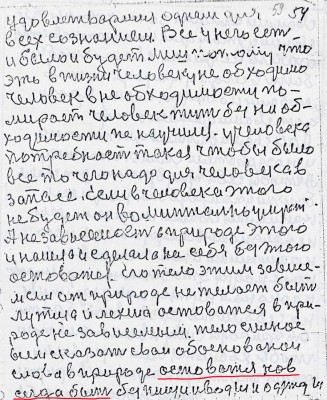 удовлетварили одним для 53 54
всех сознанием Все у него ест
и было и будет лиш потому что
это в жизни человеку необходимо
человек в не обходимости по-
мирает человек жит без ни об-
ходимости не научился. у человека
потребност такая чтобы было
все то чего надо для человека в
запасе. если в человека этого
не будет он вомиттельно умирт.
А независемост в природе этого
и нашла и сделала на себя без этого
остоватся. это тело этим зависе-
мым от природе не желает быт
путила и легша остоватся в при-
роде не зависемый. тело сильное
всим сказат свои обоснований
слова в природе остоватся нав
сегда быт без пищи и воды и одежды